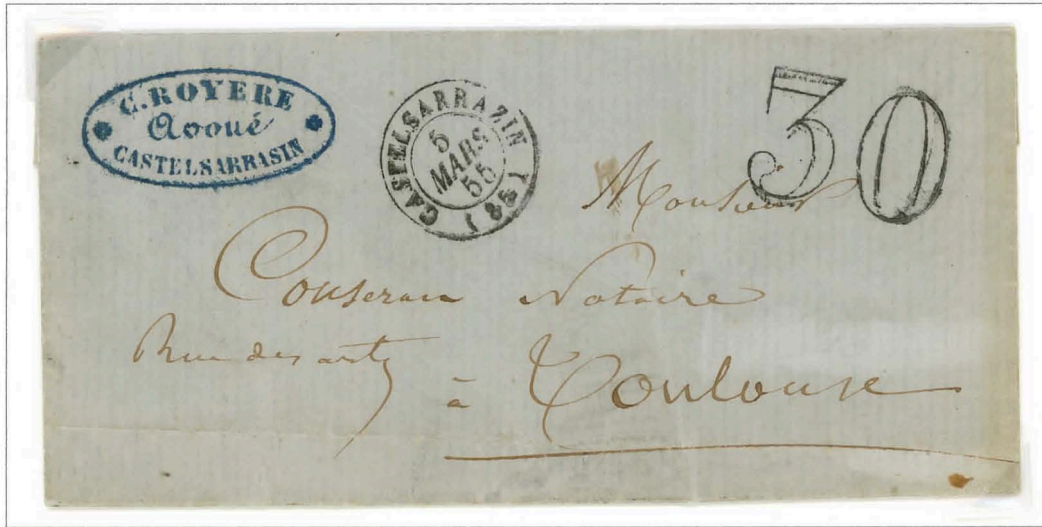 C. ROYERE
Avoué
CASTELSARRASIN
CASTELSARRAZIN (88)
5
MARS
55
30
Monsieur
Notaire
Rue des arts
à Toulouse